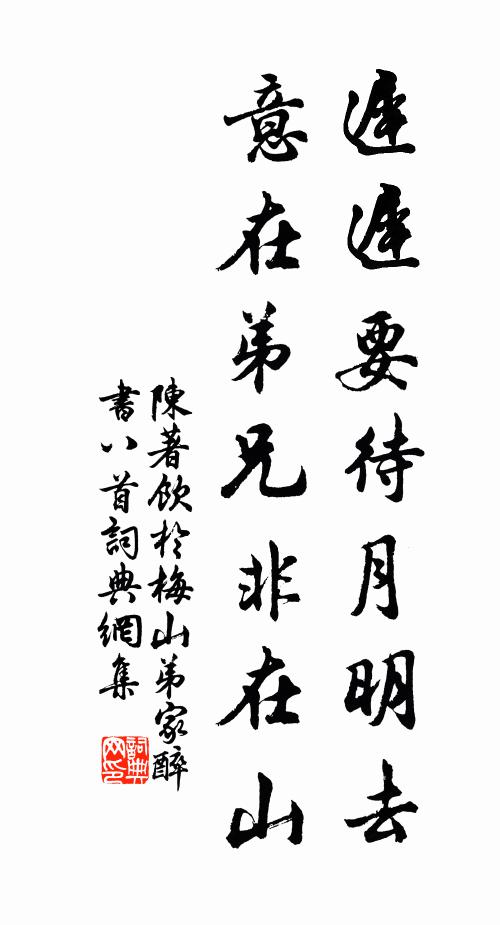 遲遲要待月明去
意在弟兄非在山
陳著飲於梅山弟家醉
書八首詞典網集
詞典
网印